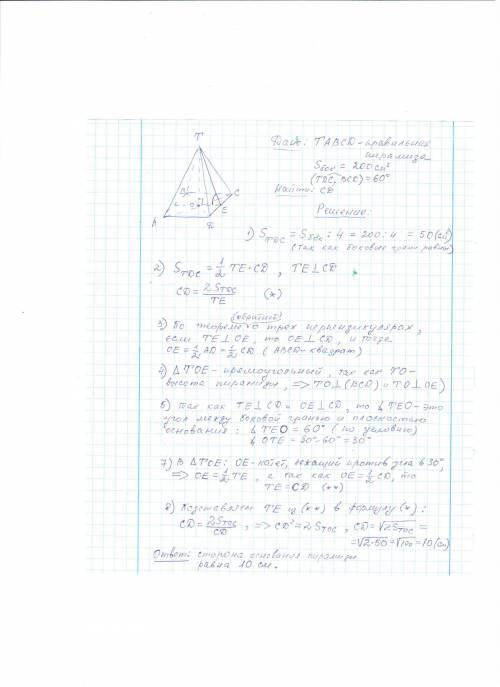 T
B
C
O
E
A
D
Дано: TABCD - правильная
пирамида
Sбок = 200 см²
(TDC, BCD) = 60°
Найти: CD
Решение:
1) S_TDC = Sбок : 4 = 200 : 4 = 50 (см²)
(так как боковые грани равны)
2) S_TDC = 1/2 TE · CD, TE ⊥ CD
CD = 2S_TDC / TE (*)
(обратной)
3) По теореме о трех перпендикулярах,
если TE ⊥ OE, то OE ⊥ CD, и тогда
OE = 1/2 AD = 1/2 CD (ABCD - квадрат)
4) Δ TOE - прямоугольный, так как TO -
высота пирамиды, => TO ⊥ (BCD) и TO ⊥ OE)
6) Так как TE ⊥ CD и OE ⊥ CD, то ∠ TEO - это
угол между боковой гранью и плоскостью
основания: ∠ TEO = 60° (по условию)
∠ OTE = 90° - 60° = 30°
7) В Δ TOE: OE - катет, лежащий против угла в 30°,
=> OE = 1/2 TE, а так как OE = 1/2 CD, то
TE = CD (**)
8) Подставляем TE из (**) в формулу (*):
CD = 2S_TDC / CD, => CD² = 2S_TDC, CD = √2S_TDC =
= √2·50 = √100 = 10 (см)
Ответ: сторона основания пирамиды
равна 10 см.